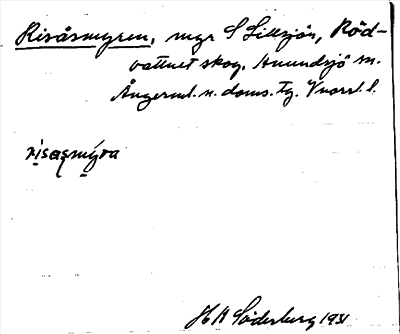 Risåsmyren, myr S Lillsjön, Röd-
vattnet skog, Anundsjö sn.
Ångerml. n. doms. tg. Vnorrl. l.
risasmýra
H A Söderberg 1931